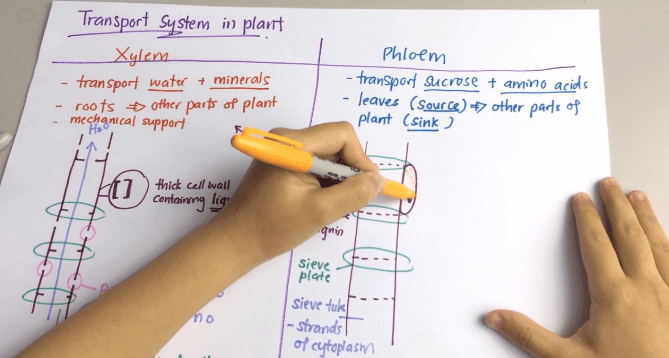 Transport System in plant
Xylem
- transport water + minerals
- roots => other parts of plant
- mechanical support
H2O
thick cell wall
containing
Phloem
- transport sucrose + amino acids
- leaves (source) => other parts of
plant (sink)
sieve
plate
sieve
- strands
of cytoplasm